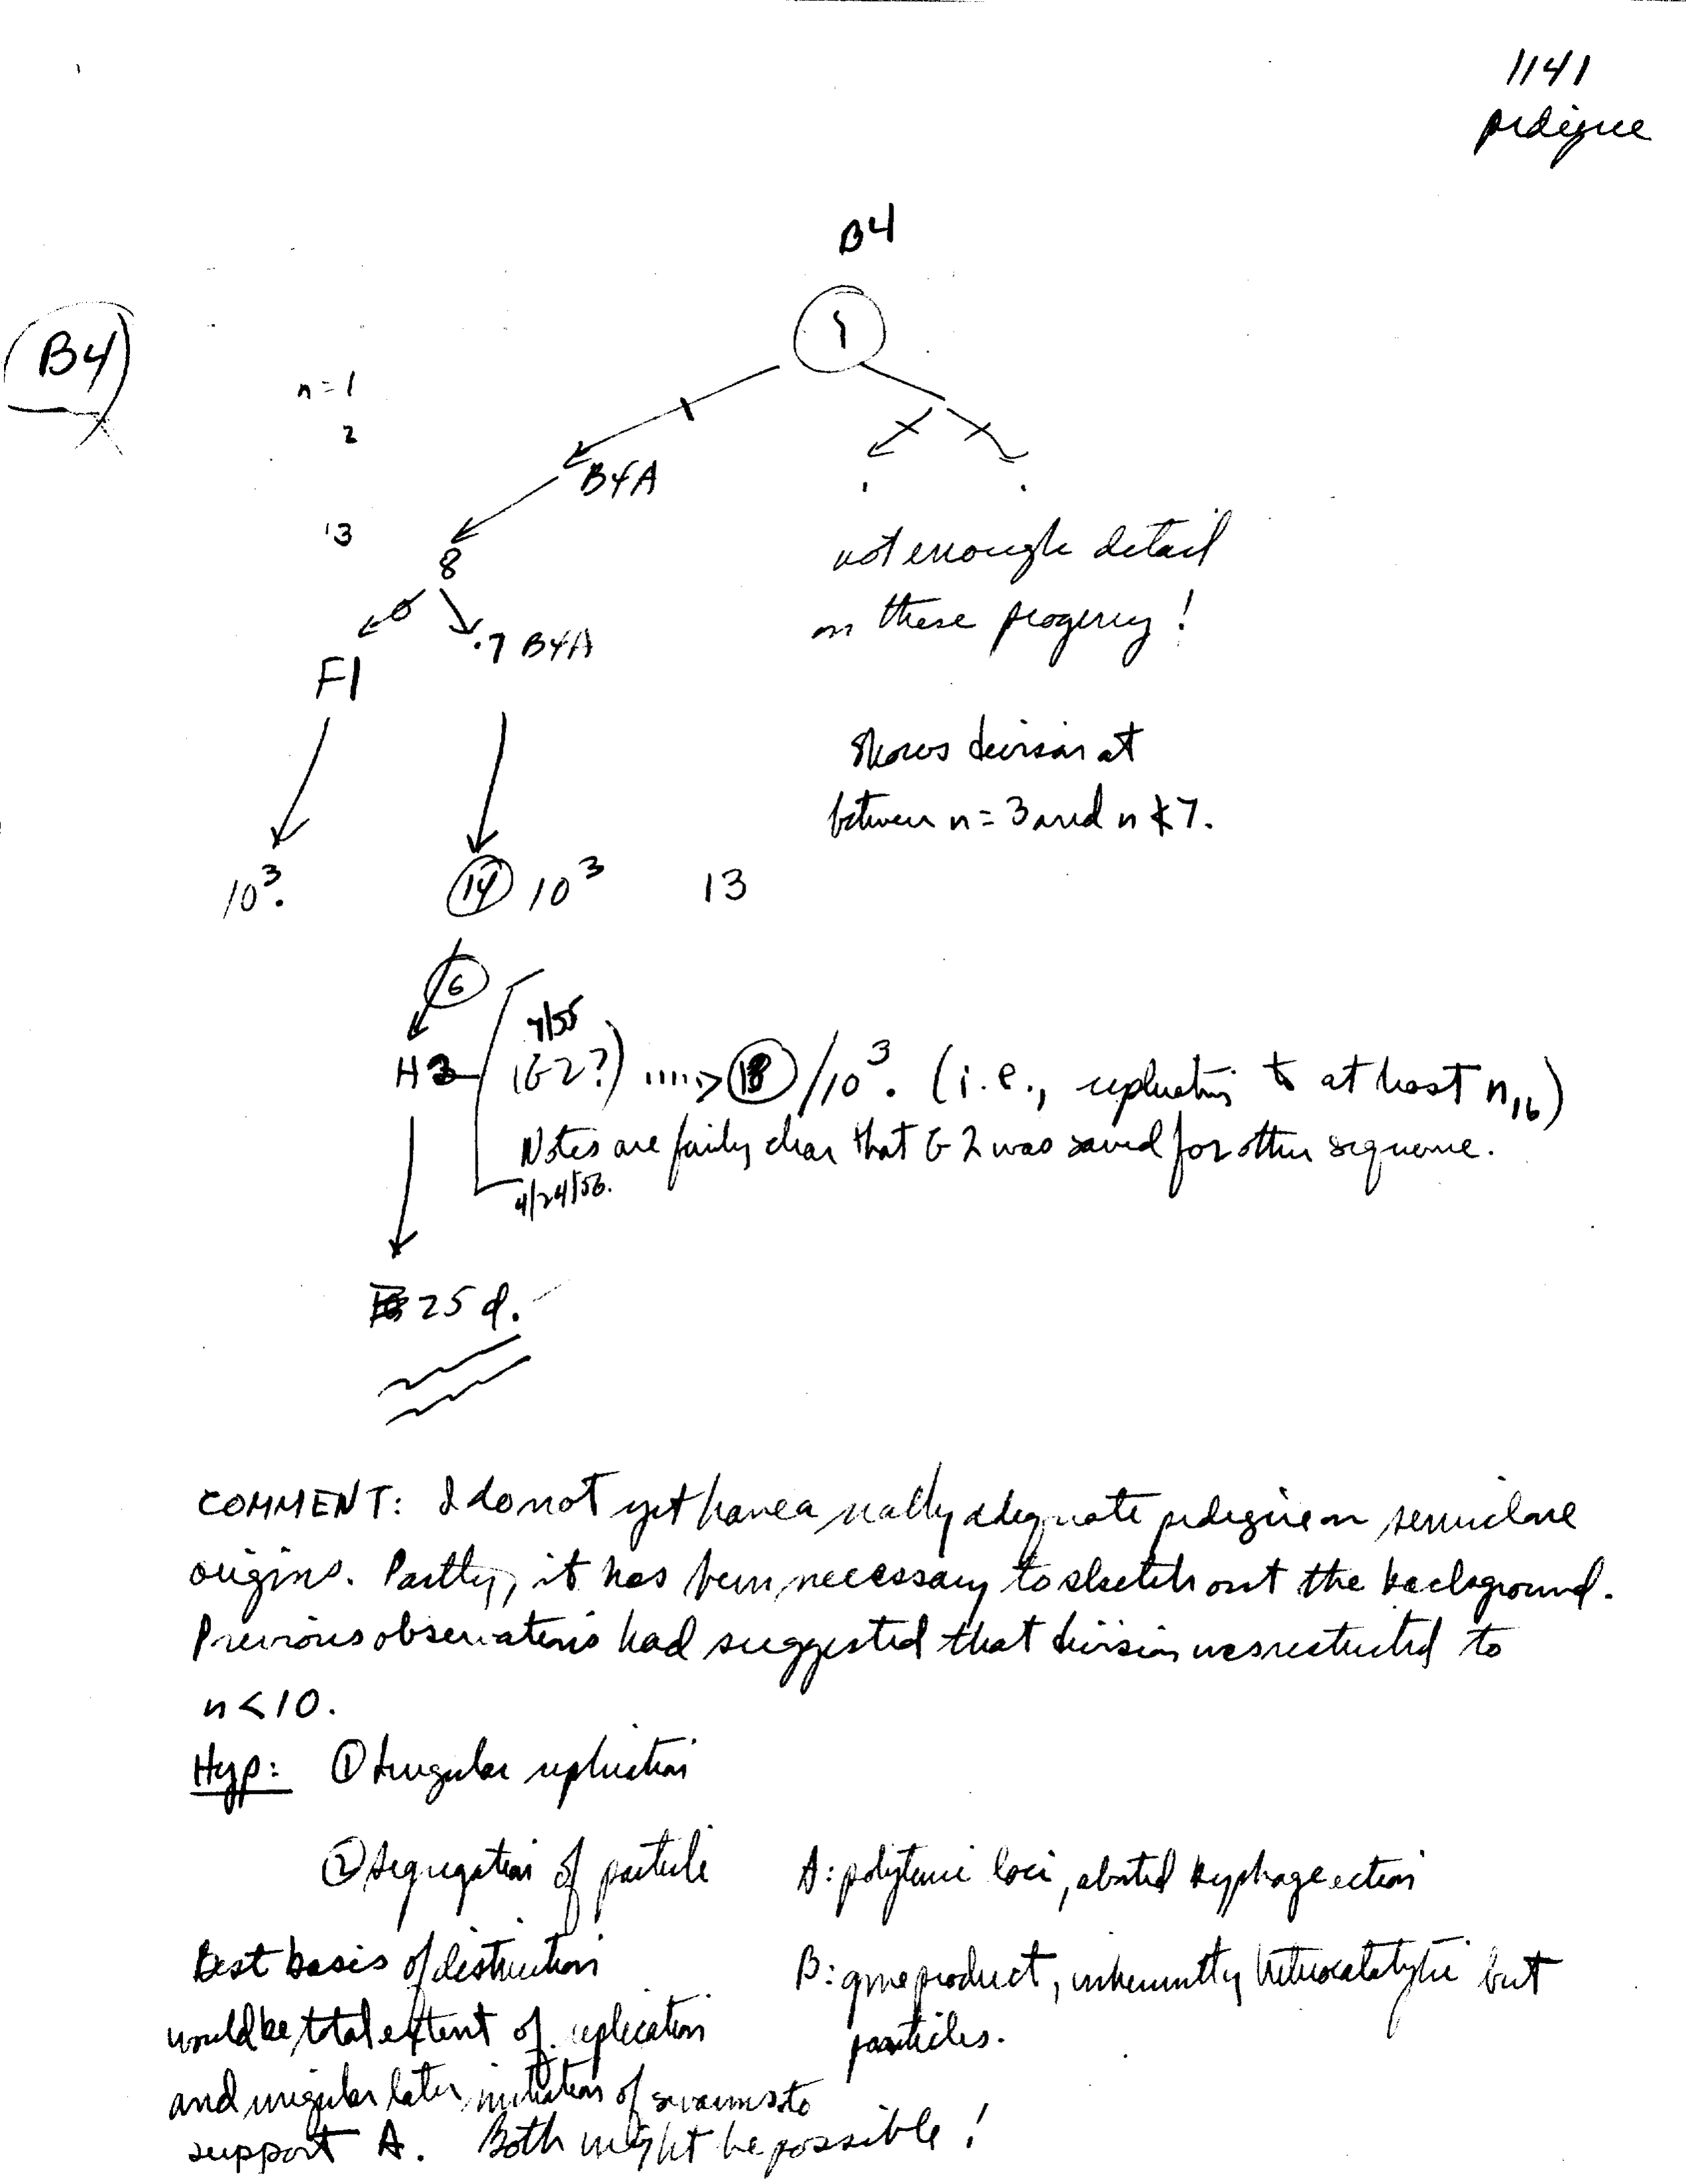 1141
pedigree
B4
B4
1
n = 1
2
B4A
13
8
not enough detail
on these progeny!
F1
.7 B4A
Shows division at
between n = 3 and n 7.
10³.
14 10³ 13
6
H3 (G2?) ....> /10³. (i.e., replication to at least n16)
Notes are fairly clear that G2 was saved for other sequence.
4/24/56.
25 d.
COMMENT: I do not yet have a really adequate pedigree on semiclone
origins. Partly, it has been necessary to sketch out the background.
Previous observations had suggested that division was restricted to
n < 10.
Hyp: ① Irregular replication
② Segregation of particle A: polytenic loci, aborted by phage action
Best basis of distinction B: gene product, inherently heterocatalytic but
would be total extent of replication particles.
and irregular later initiation of swarms to
support A. Both might be possible!